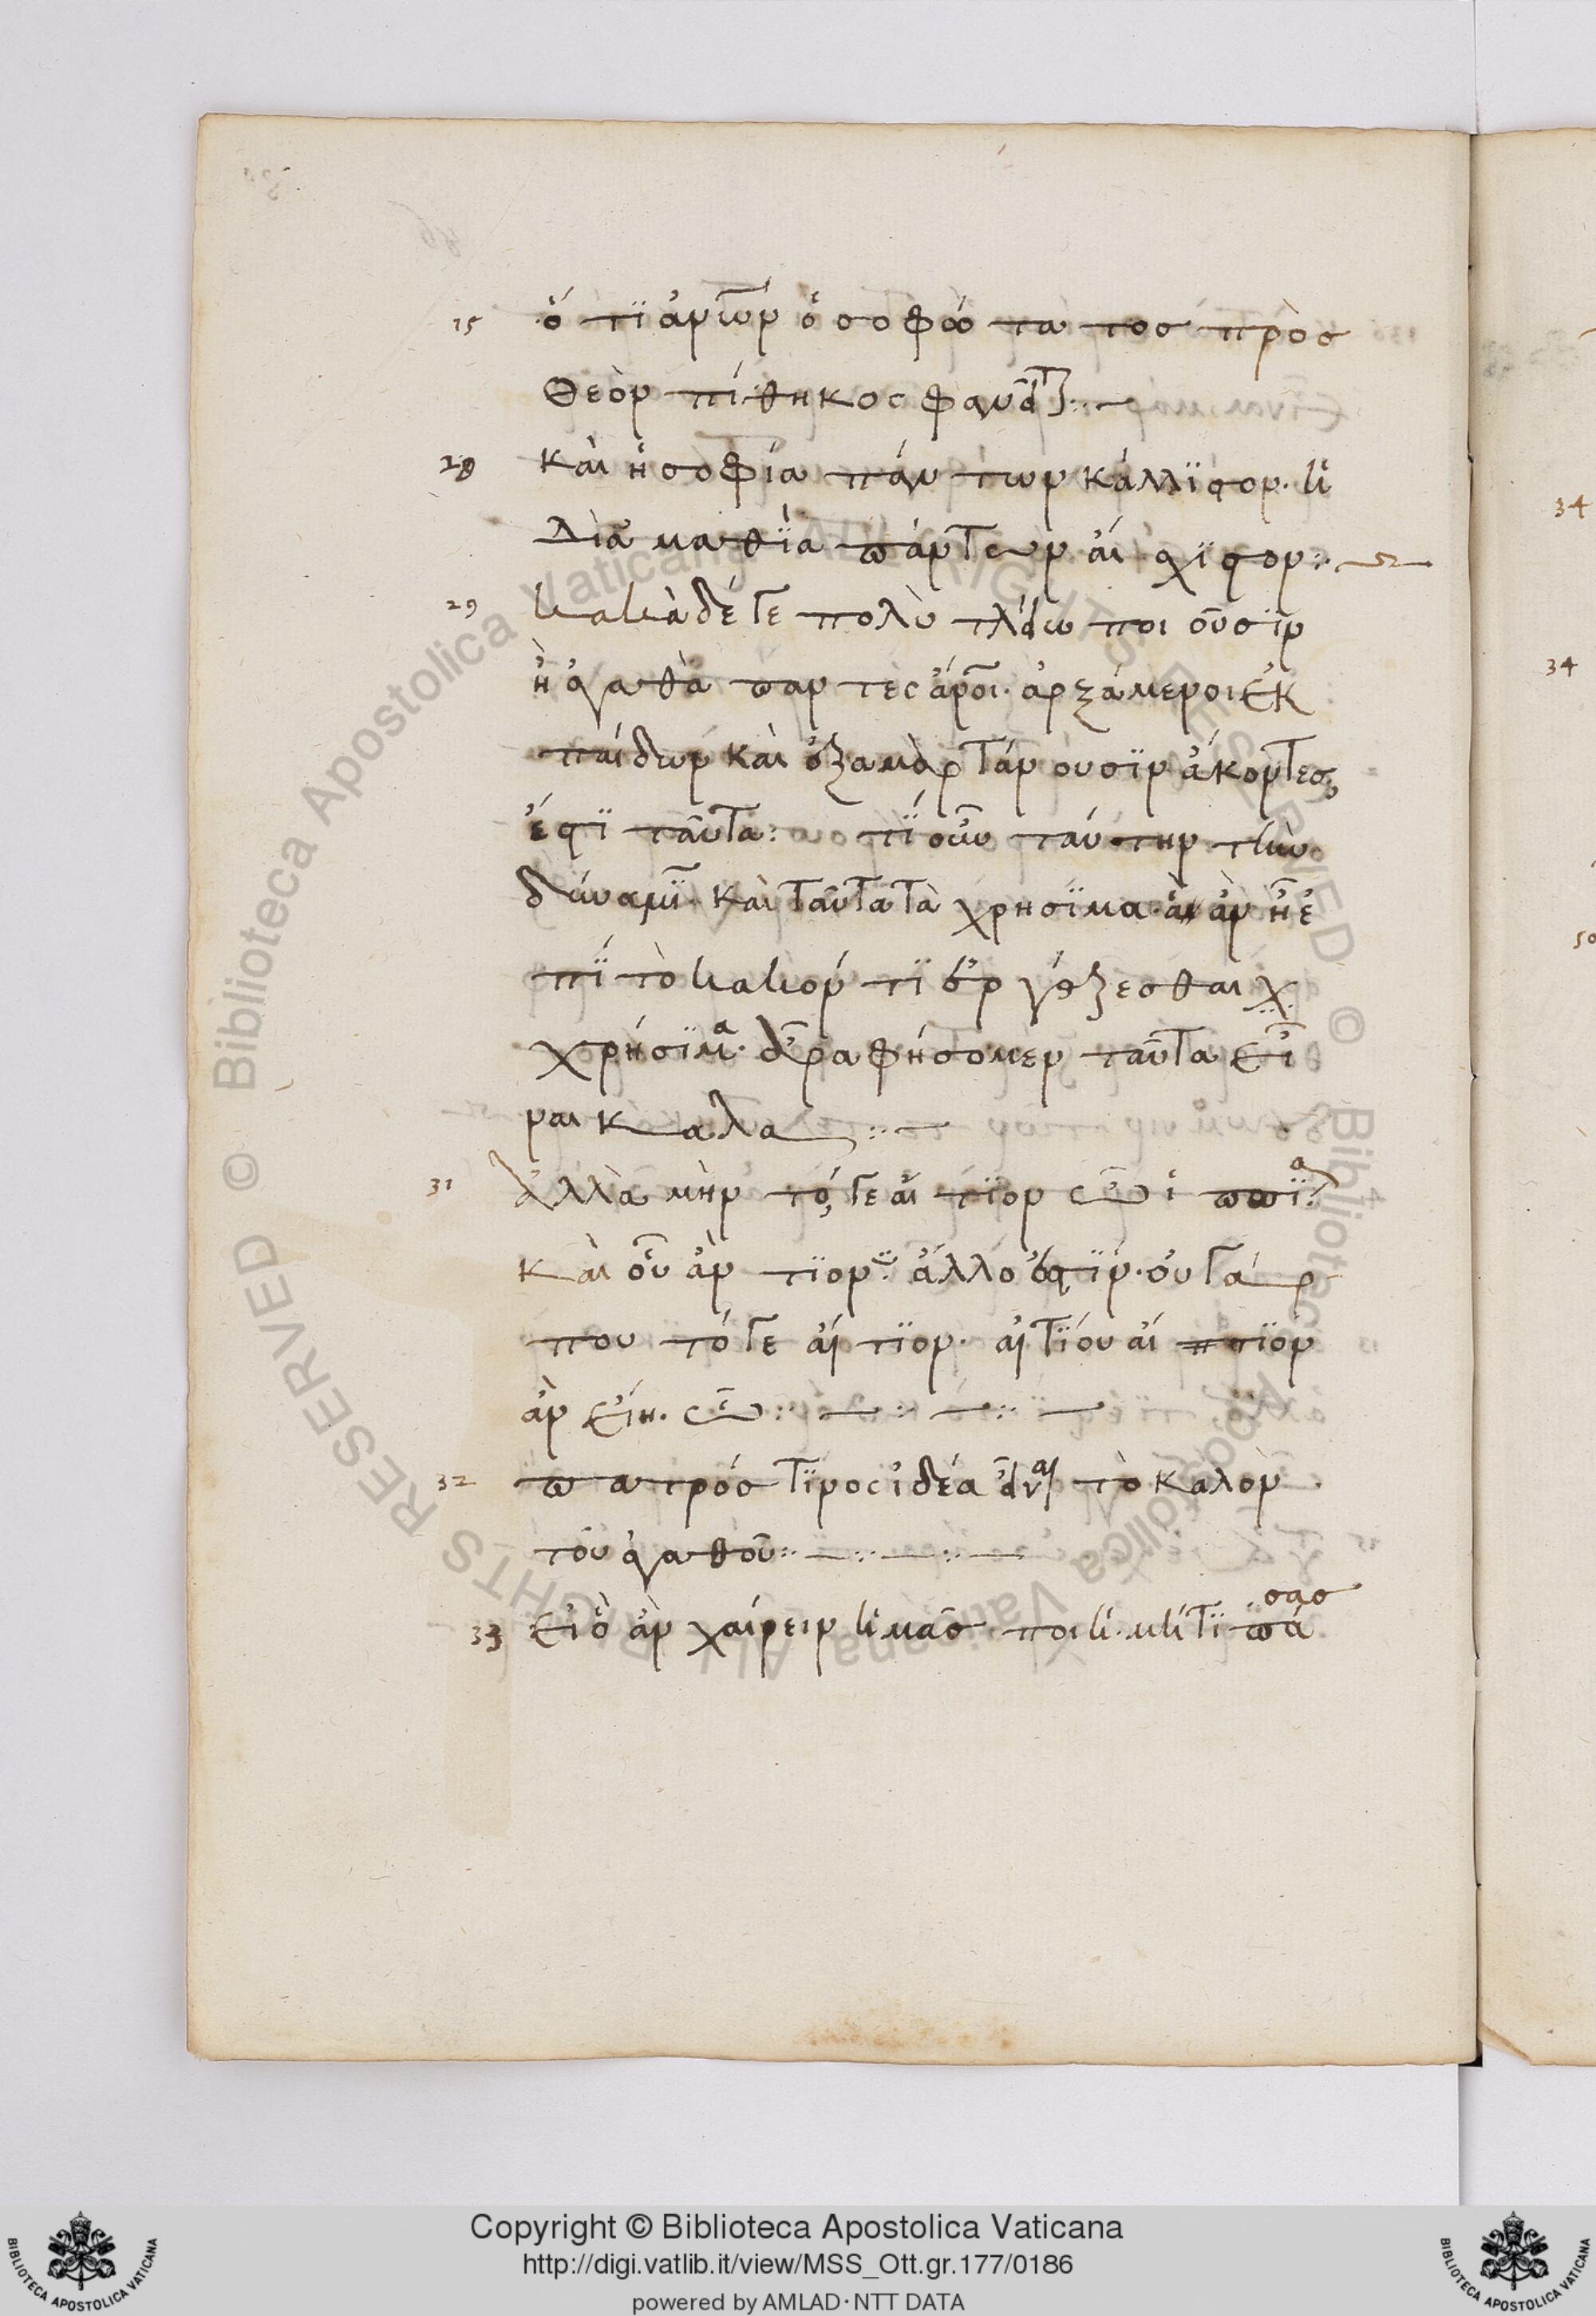 15 ὅτι ἀνων ὁ σοφώτατος πρὸς
θεὸν πίθηκος φανεῖται
28 καὶ ἡ σοφία πάντων κάλλιστον· ἡ
δὲ ἀμαθία πάντων αἴσχιστον
29 κακὰ δέ γε πολὺ πλείω ποιοῦσιν
ἢ ἀγαθὰ πάντες ἄνοι· ἀρξάμενοι ἐκ
παίδων καὶ ἐξαμαρτάνουσιν ἄκοντες,
ἔστι ταῦτα: τί οὖν ταύτην τὴν
δύναμιν· καὶ ταῦτα τὰ χρήσιμα· ἃ ἂν ᾖ ἐ
πὶ τὸ κακόν τι ἐργάζεσθαι χ
χρήσιμα· φήσομεν ταῦτα εἶ
ναι καλα
31 ἀλλὰ μὴν τό, γε αἴτιον ἐστὶ ποιοῦν
καὶ οὗ ἂν αἴτιον ἄλλο ἐστίν· οὐ γάρ
που τό γε αἴτιον· αἰτίου αἴτιον
ἂν εἴη.
32 πατρός τινος ἰδέα εἶναι τὸ καλὸν
τοῦ ἀγαθοῦ
33 εἰ ὃ ἂν χαίρειν ἡμᾶς ποιῇ· μή τι πάσας
34
34
50
Copyright © Biblioteca Apostolica Vaticana
http://digi.vatlib.it/view/MSS_Ott.gr.177/0186
powered by AMLAD·NTT DATA
BIBLIOTECA APOSTOLICA VATICANA
BIBLIOTECA APOSTOLICA VATICANA
© Biblioteca Apostolica Vaticana ALL RIGHTS RESERVED © Biblioteca Apostolica Vaticana ALL RIGHTS RESERVED